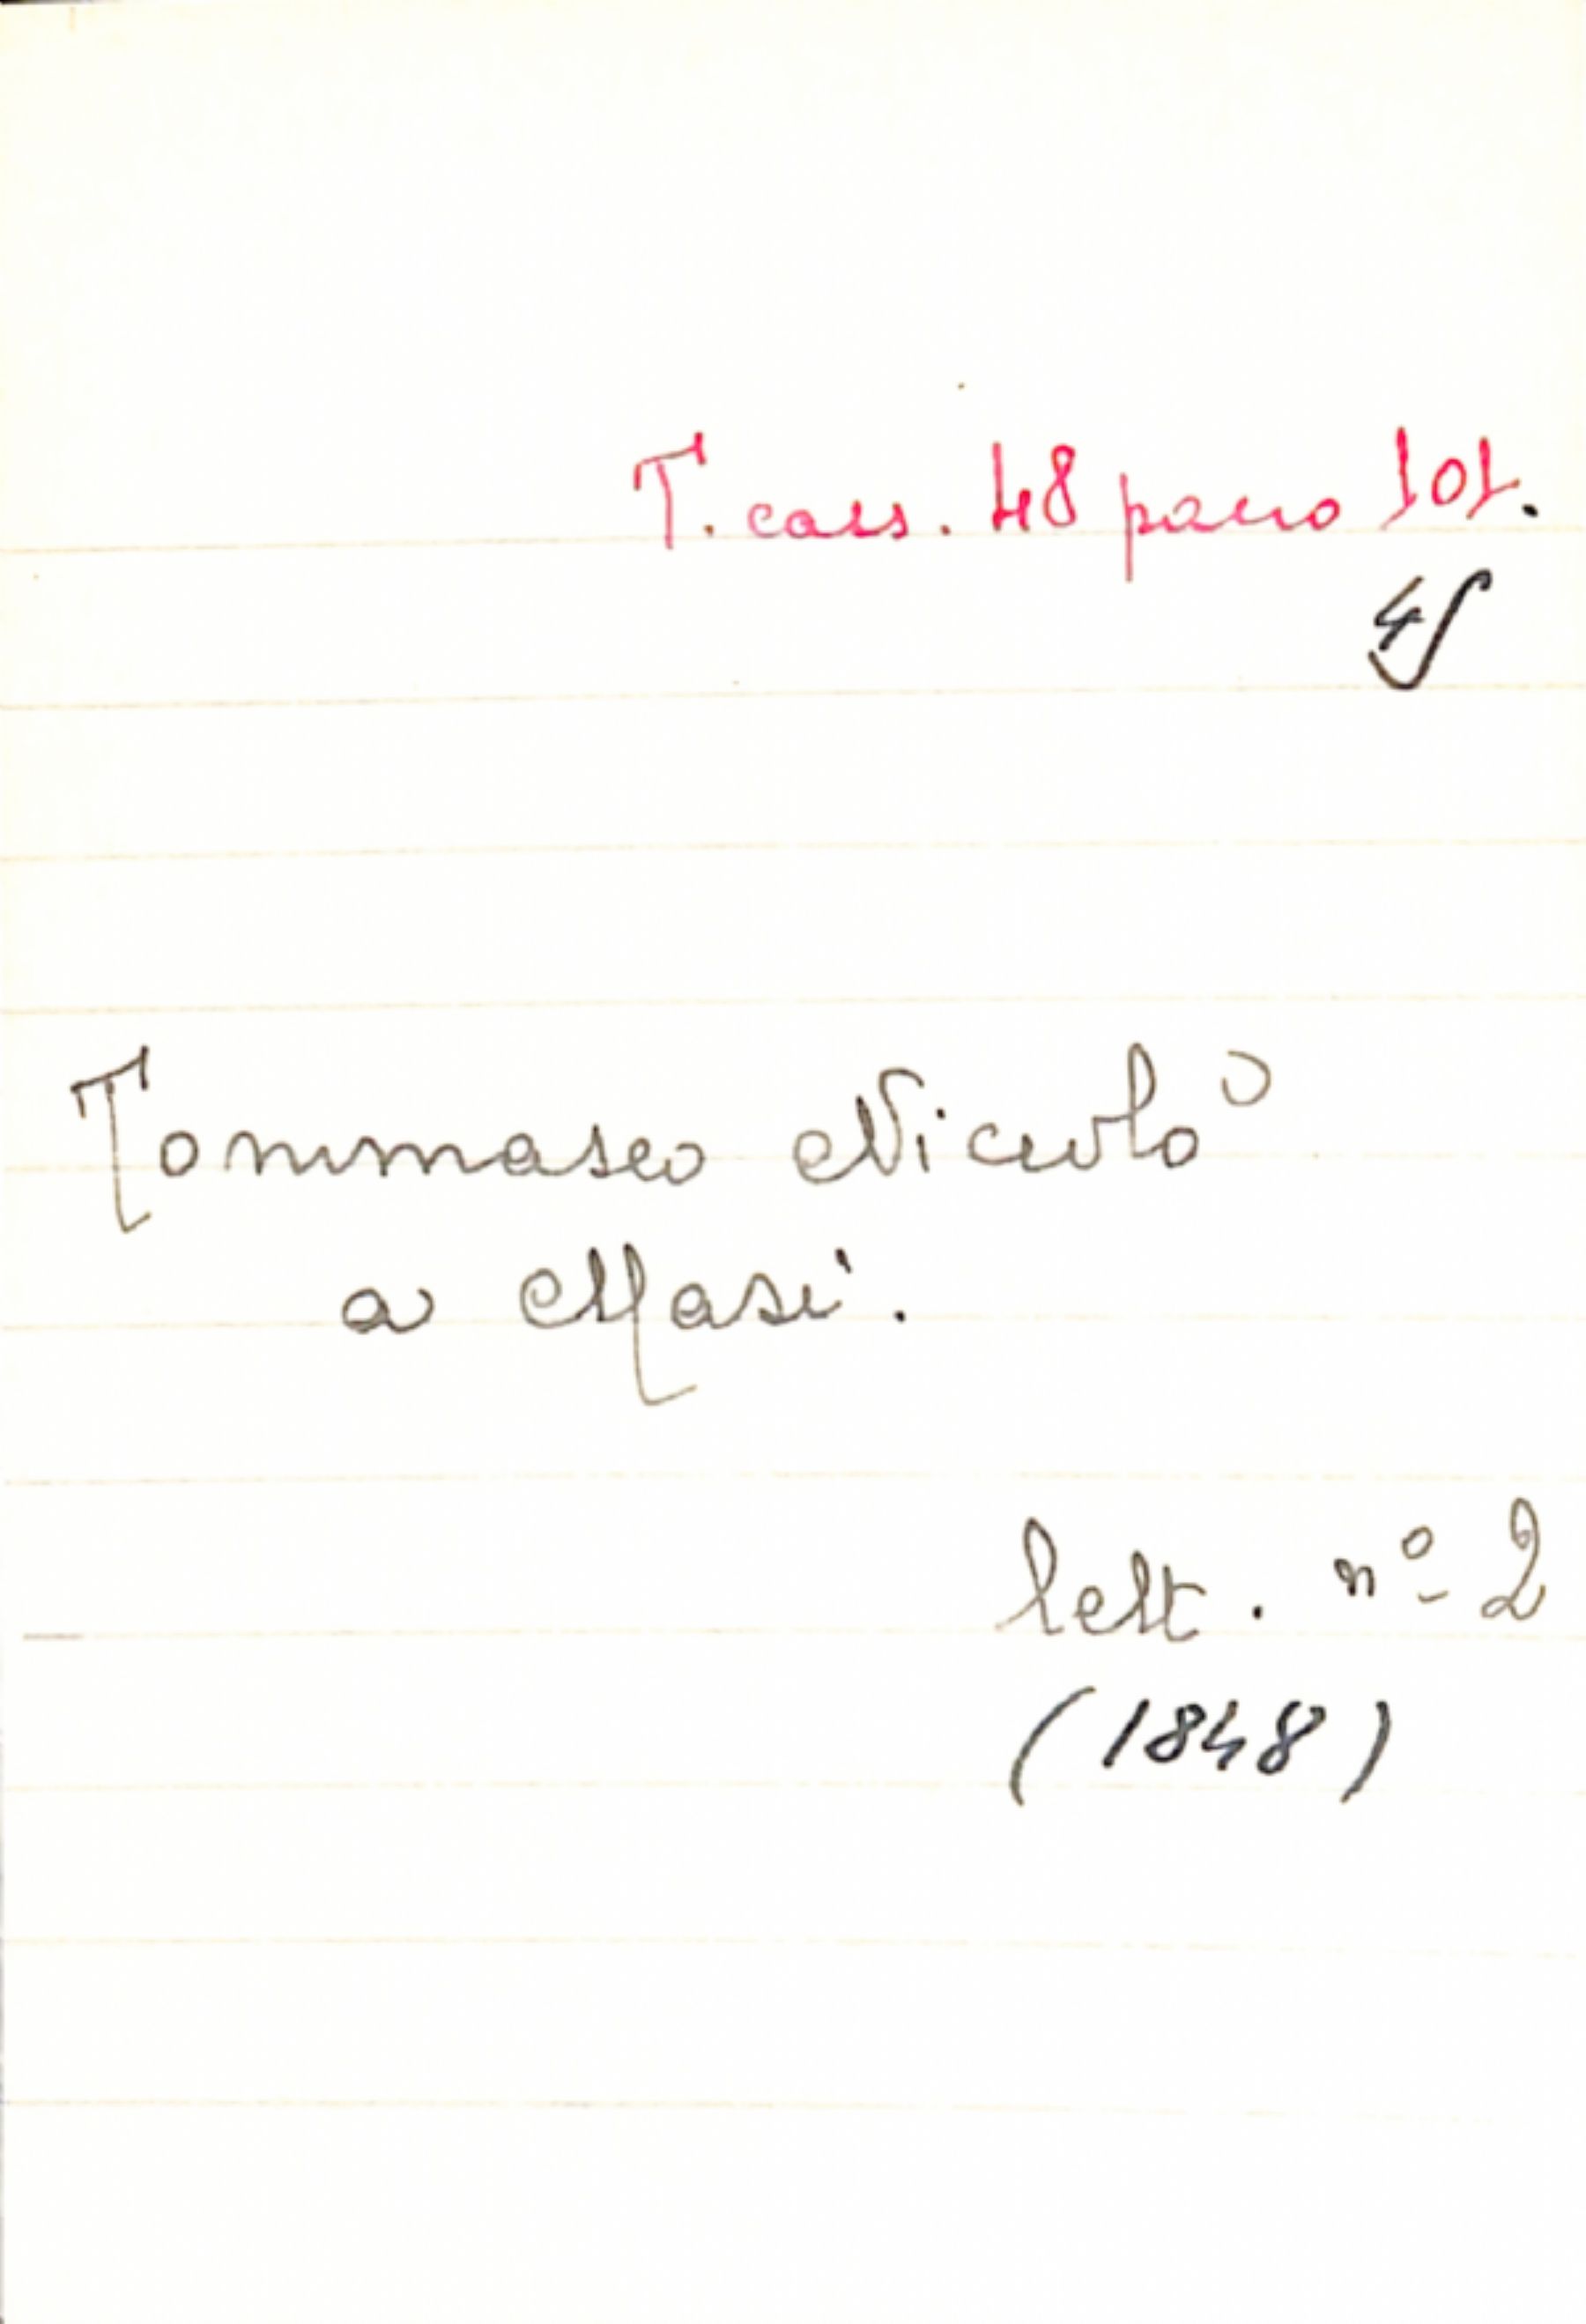 T. cass. 48 pacco 101.
45
Tommaseo Niccolò
a Masi.
lett. nº 2
(1848)